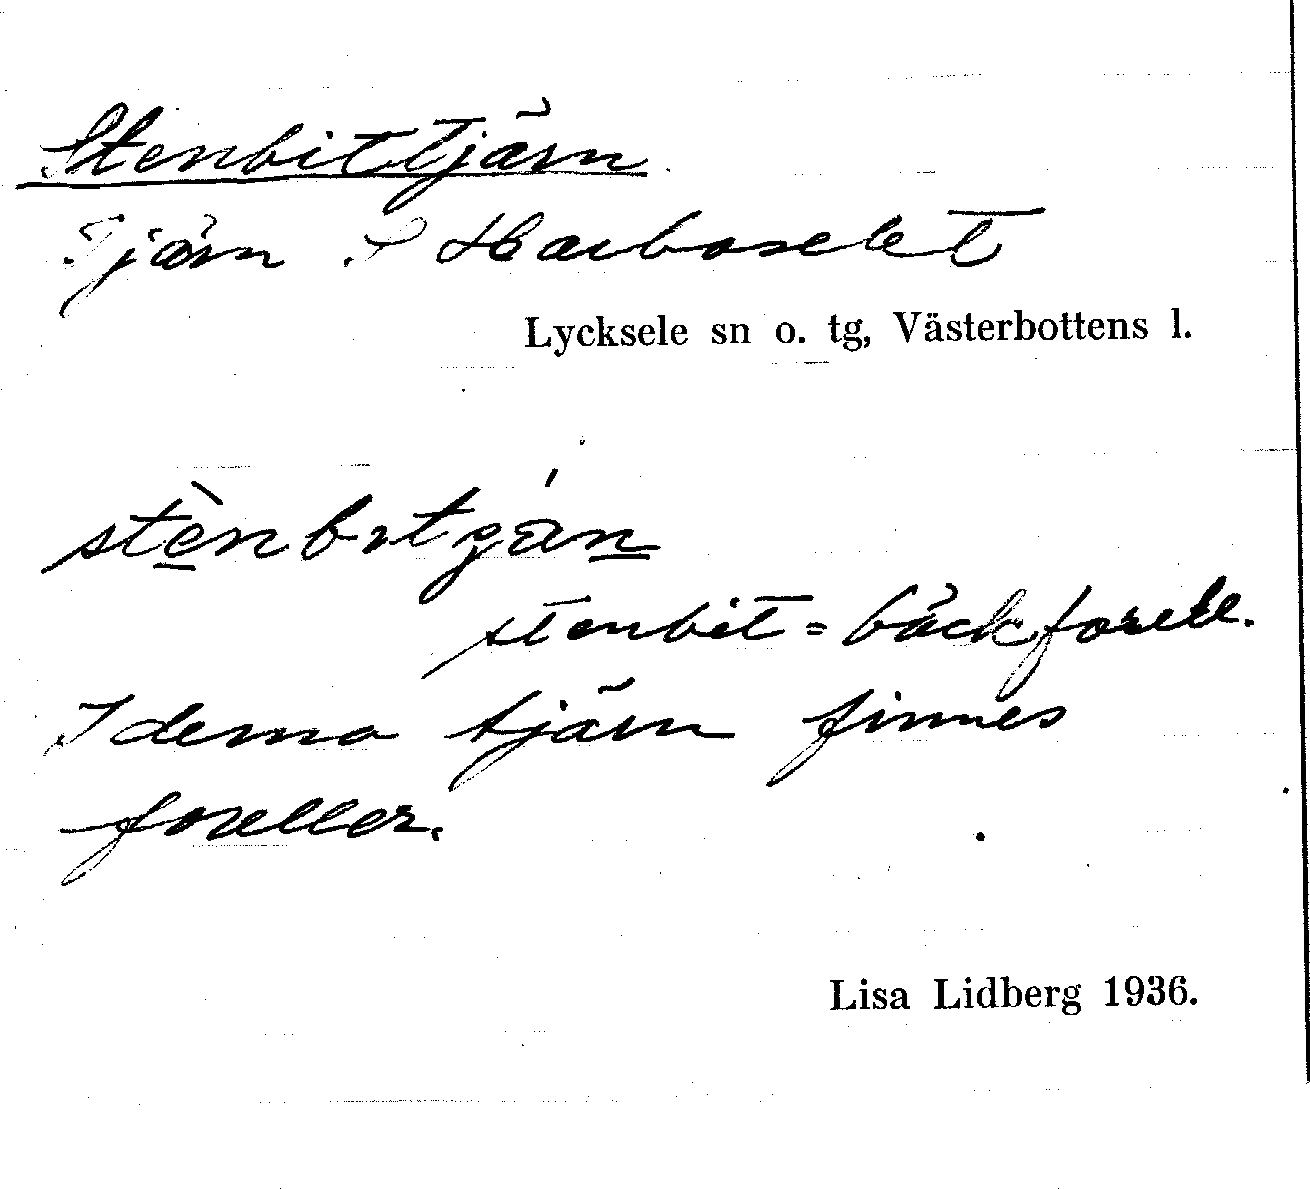 Stenbittjärn
Tjärn S Harboselet
Lycksele sn o. tg, Västerbottens l.
stènbitgán
stenbit = bäckforell.
I denna tjärn finnes
foreller.
Lisa Lidberg 1936.